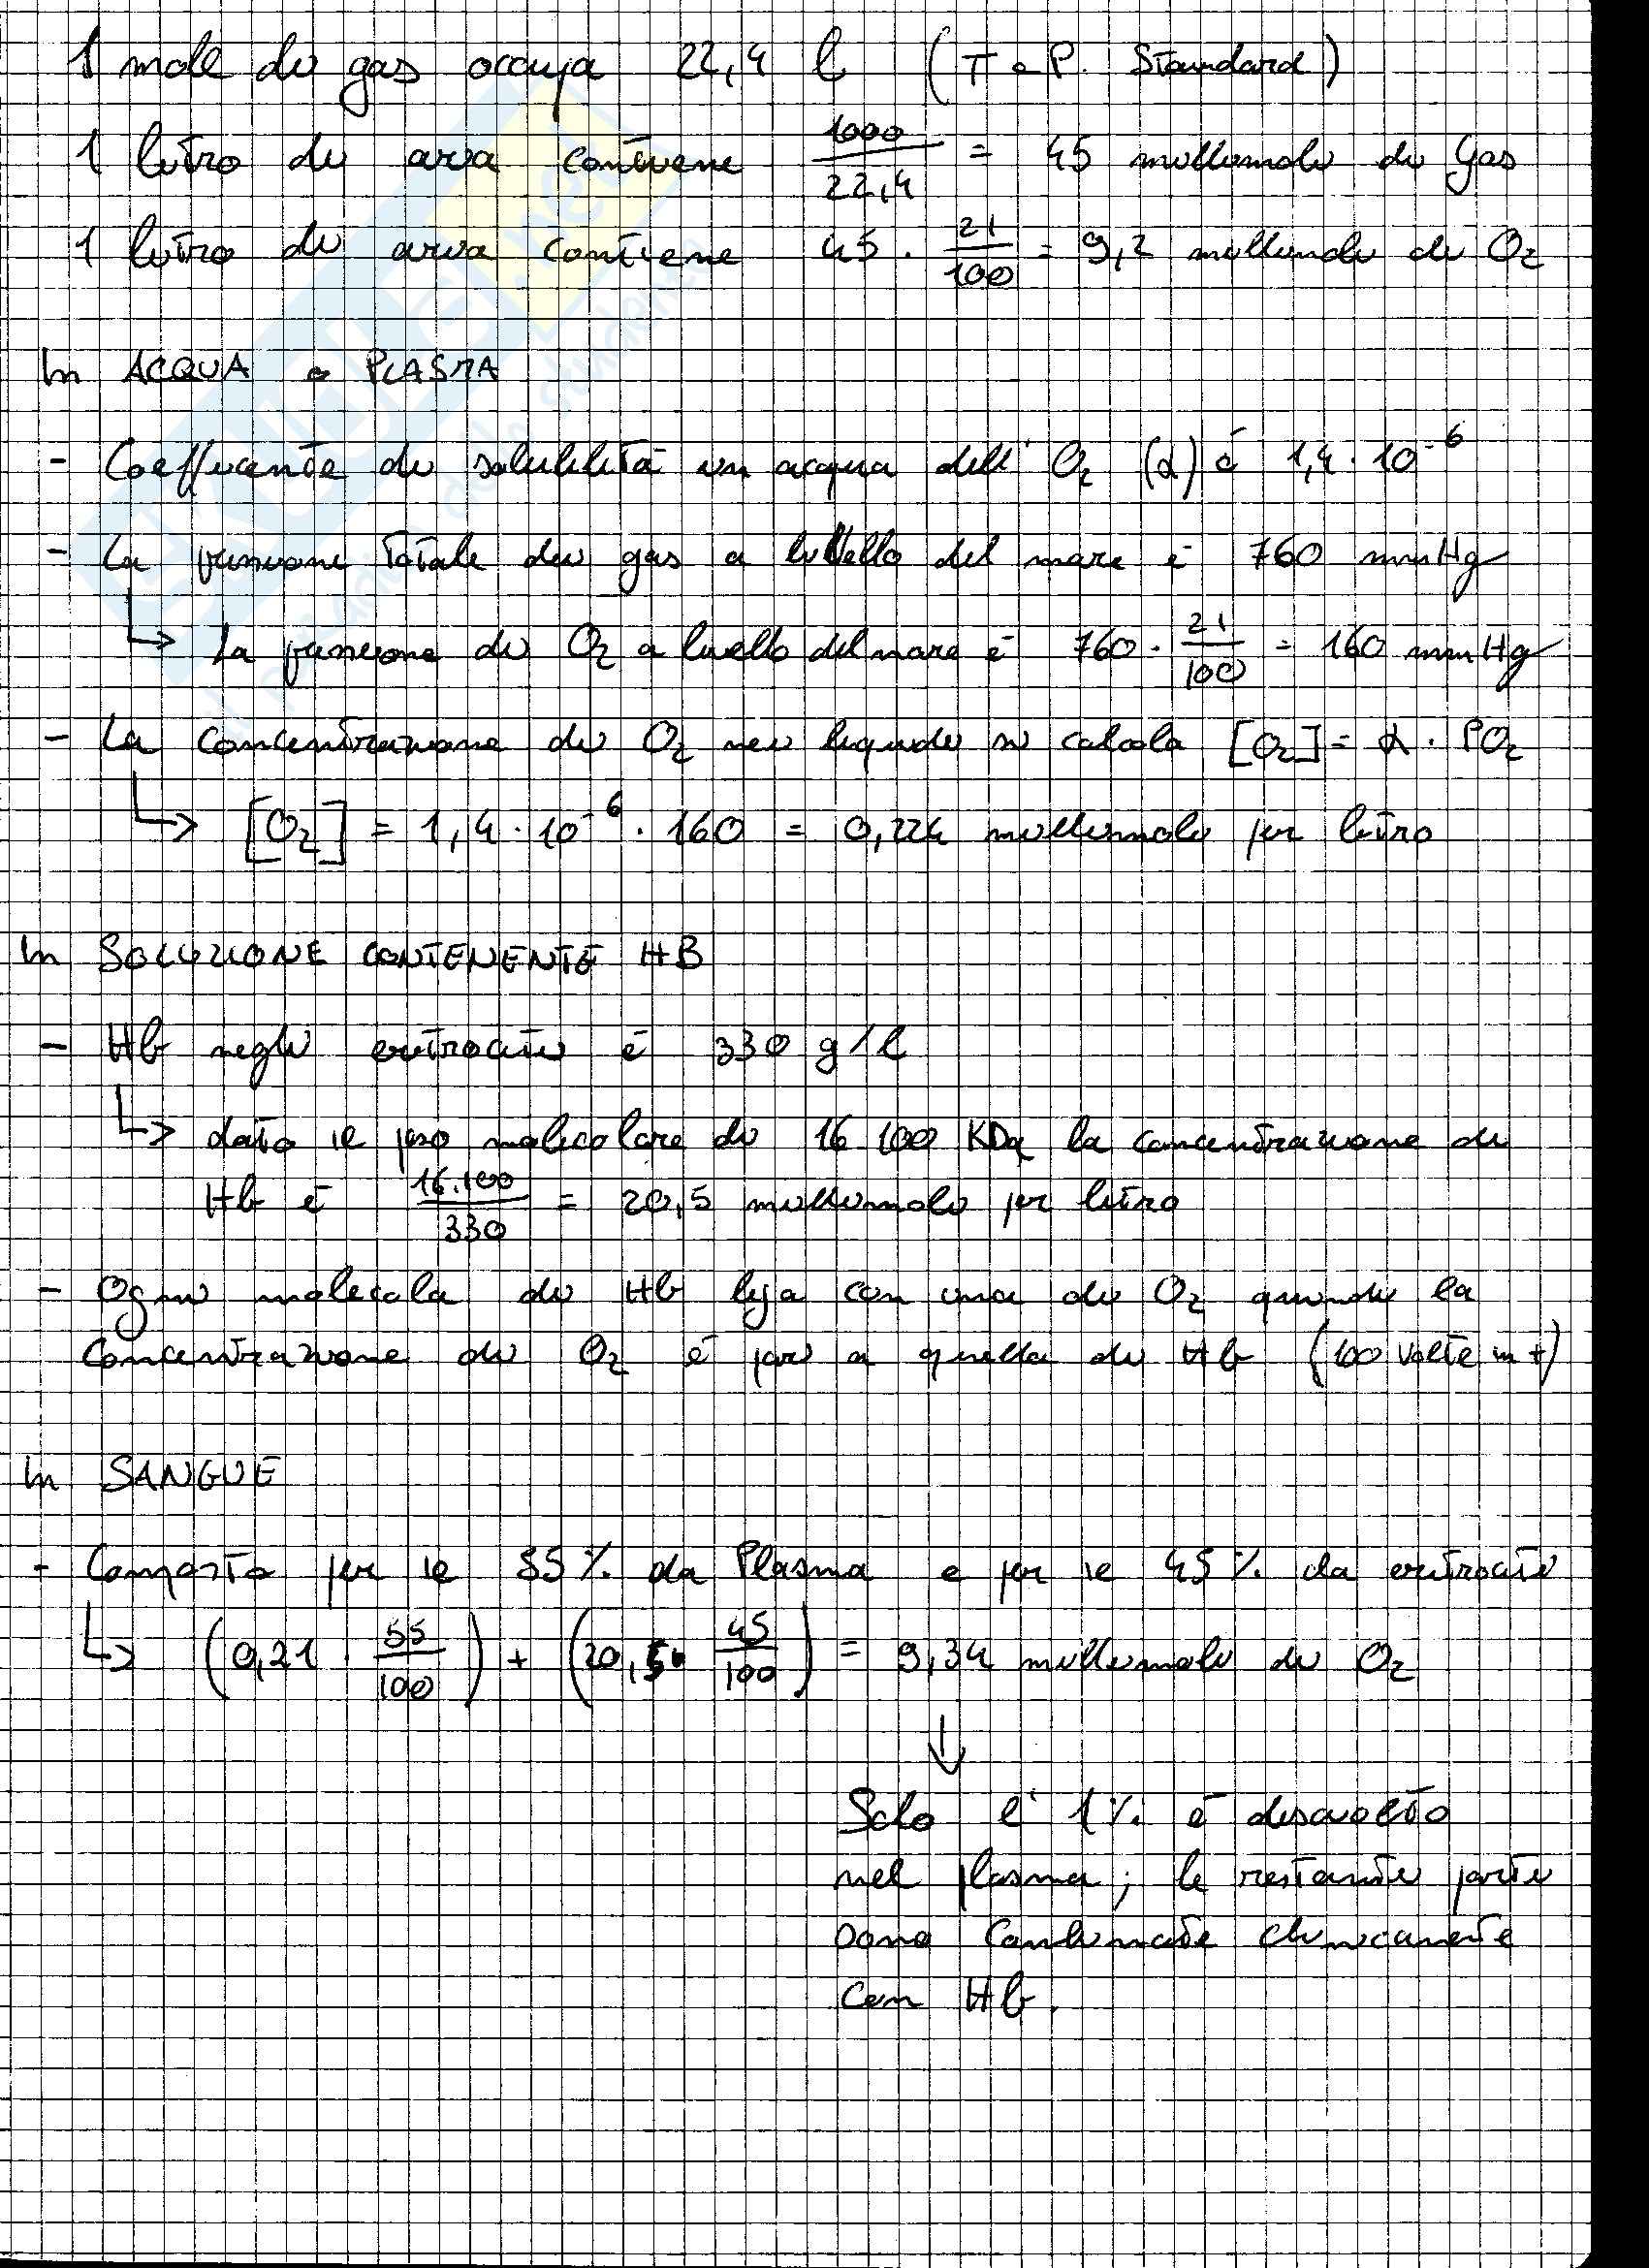 1 mole di gas occupa 22,4 l (T e P. Standard)
1 litro di aria contiene 1000/22,4 = 45 millimoli di Gas
1 litro di aria contiene 45 · 21/100 = 9,2 millimoli di O₂
In ACQUA o PLASMA
- Coefficiente di solubilità in acqua dell' O₂ (α) è 1,4 · 10⁻⁶
- La pressione Totale dei gas a livello del mare è 760 mmHg
↳ La pressione di O₂ a livello del mare è 760 · 21/100 = 160 mmHg
- La concentrazione di O₂ nei liquidi si calcola [O₂] = α · PO₂
↳ [O₂] = 1,4 · 10⁻⁶ · 160 = 0,224 millimoli per litro
In SOLUZIONE CONTENENTE HB
- Hb negli eritrociti è 330 g/l
↳ dato il peso molecolare di 16 100 KDa la concentrazione di
Hb è 16.100/330 = 20,5 millimoli per litro
- Ogni molecola di Hb lega con una di O₂ quindi la
Concentrazione di O₂ è pari a quella di Hb (100 volte in +)
In SANGUE
- Composto per il 55% da Plasma e per il 45% da eritrociti
↳ (0,21 · 55/100) + (20,5 · 45/100) = 9,34 millimoli di O₂
↓
Solo l' 1% è disciolto
nel plasma; le restanti parti
sono combinate chimicamente
con Hb.